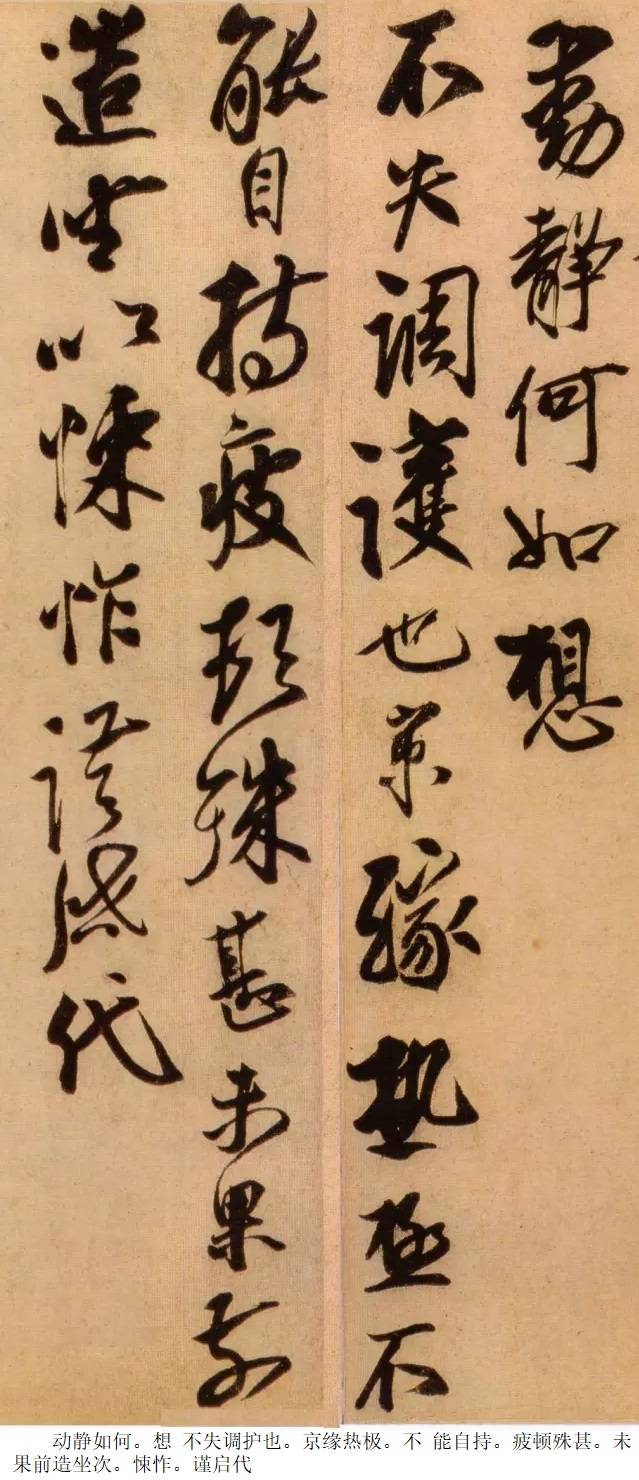 動靜何如想
不失調護也京緣熱極不
能自持疲頓殊甚未果前
造坐次悚怍謹啟代
动静如何。想 不失调护也。京缘热极。不 能自持。疲顿殊甚。未
果前造坐次。悚怍。谨启代